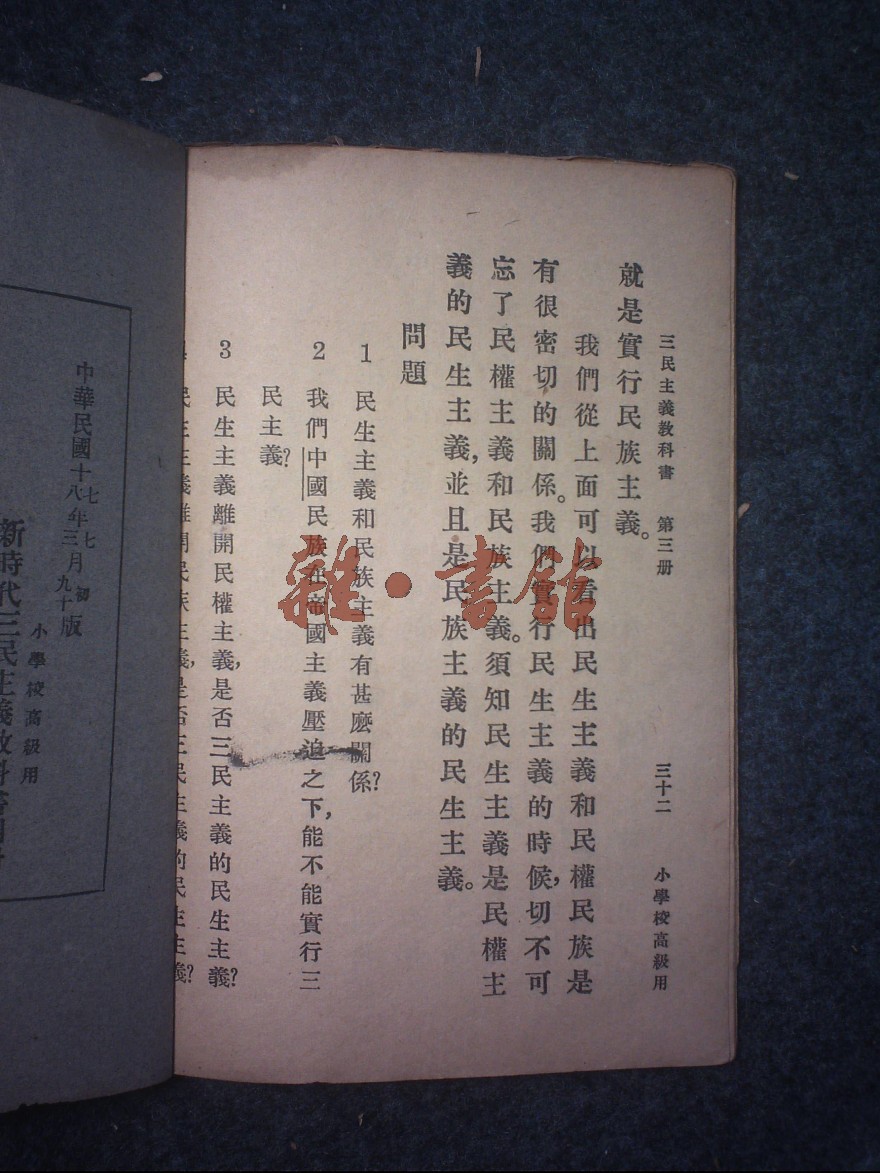 三民主義教科書 第三册 三十二 小學校高級用
就是實行民族主義。
我們從上面可以看出民生主義和民權民族是
有很密切的關係。我們實行民生主義的時候,切不可
忘了民權主義和民族主義。須知民生主義是民權主
義的民生主義,並且是民族主義的民生主義。
問題
1 民生主義和民族主義有甚麼關係?
2 我們中國民族在帝國主義壓迫之下,能不能實行三
民主義?
3 民生主義離開民權主義,是否三民主義的民生主義?
4 民生主義離開民族主義,是否三民主義的民生主義?
雜·書館
中華民國十七年七月初版
八年三 九十版
小學校高級用
新時代三民主義教科書